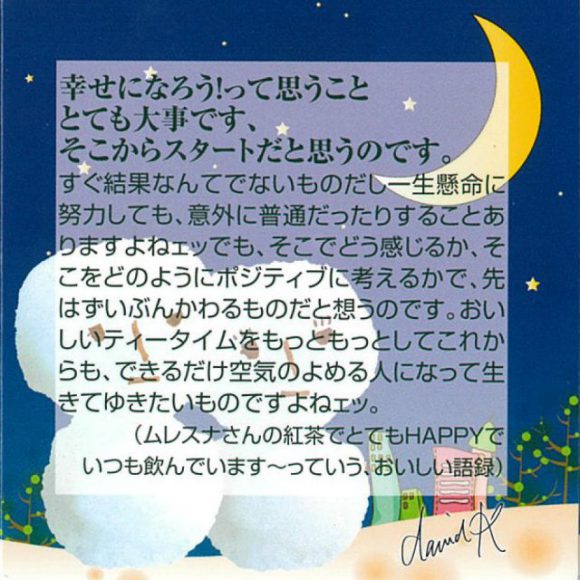 幸せになろう!って思うこと
とても大事です、
そこからスタートだと思うのです。
すぐ結果なんてでないものだし一生懸命に
努力しても、意外に普通だったりすることあ
りますよねェッでも、そこでどう感じるか、そ
こをどのようにポジティブに考えるかで、先
はずいぶんかわるものだと想うのです。おい
しいティータイムをもっともっとしてこれか
らも、できるだけ空気のよめる人になって生
きてゆきたいものですよねェッ。
(ムレスナさんの紅茶でとてもHAPPYで
いつも飲んでいます〜っていう、おいしい語録)
david K